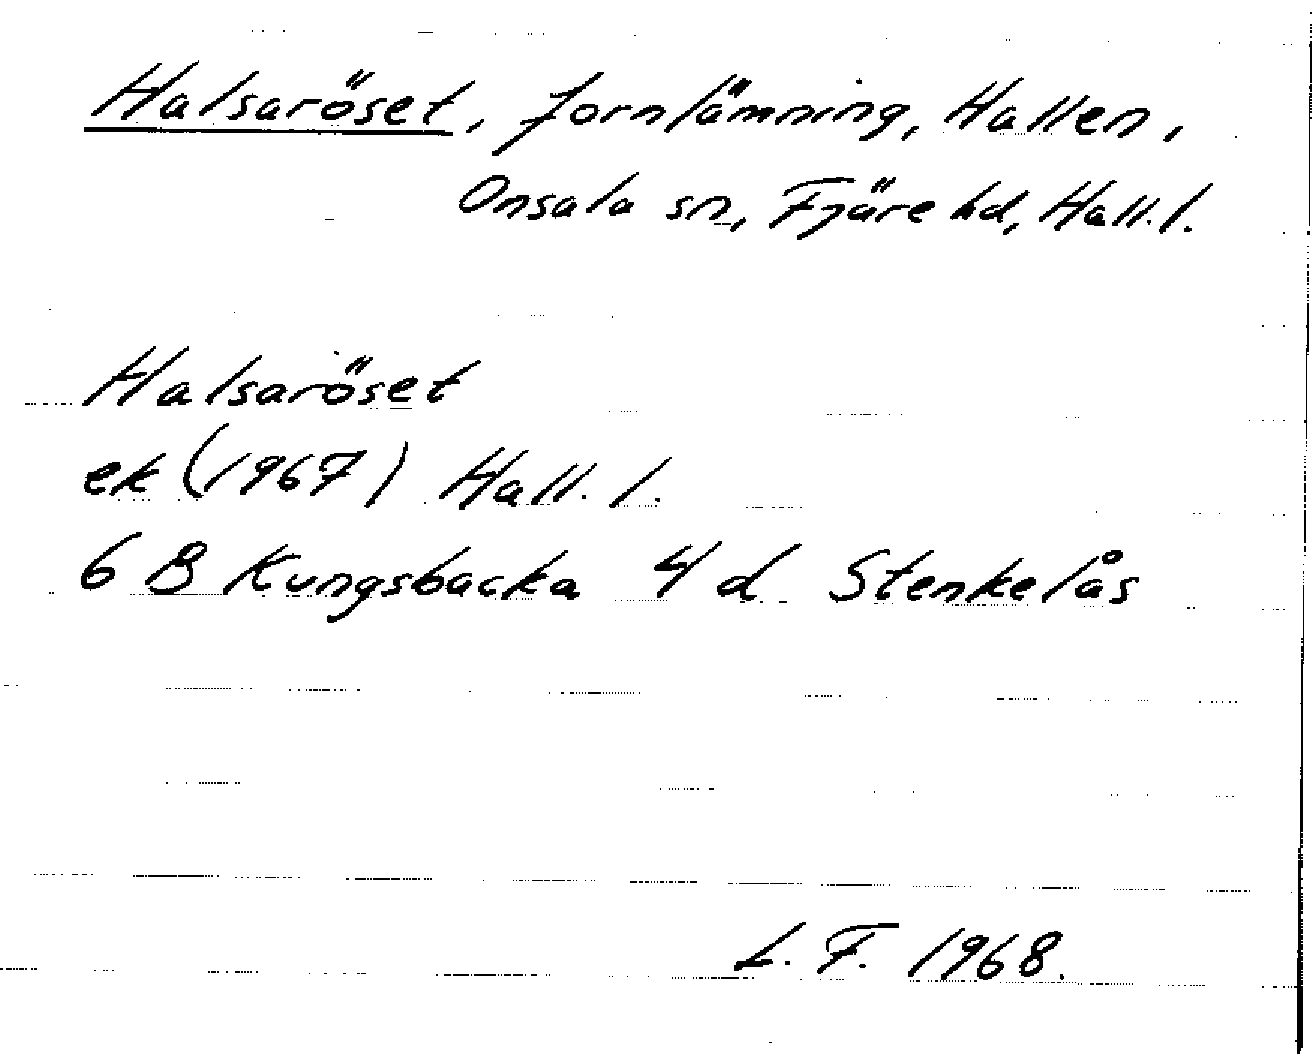 Halsaröset, fornlämning, Hallen,
Onsala sn, Fjäre hd, Hall.l.
Halsaröset
ek (1967) Hall. l.
6 B Kungsbacka 4 d Stenkelås
L. F. 1968.